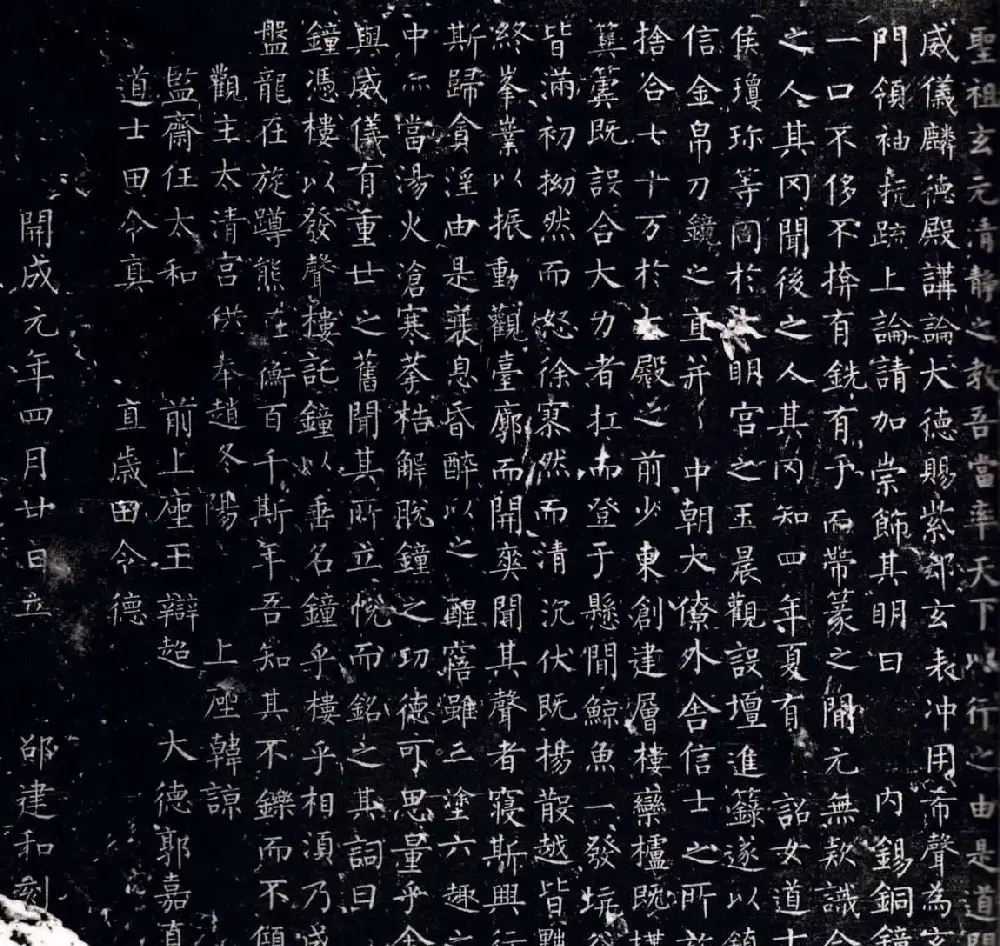 聖祖玄元清静之教吾當率天下以行之由是道門
威儀麟德殿講論大德賜紫郤玄表冲用希聲為
門領袖抗䟽上論請加崇飾其明日 内錫銅鐘
一口不侈不揜有銑有于而帶篆之間元無款識
之人其罔聞後之人其罔知四年夏有 詔女道士
侯瓊珎等同於大明宮之玉晨觀設壇進籙遂以鎮
信金帛刀鏡之直并 中朝大僚外舍信士之所
捨合七十万於大殿之前少東創建層樓欒櫨既構
簨簴既設合大力者扛而登于懸間鯨魚一發坑谷
皆滿初拗然而怒徐寥然而清沉伏既揚散越皆黜
終峯業以振動觀臺廓而開爽聞其聲者寢斯興行
斯歸貪淫由是衰息昏醉以之醒寤雖三塗六趣之
中亦當湯火滄寒拲梏解脫鐘之功德可思量乎余
與威儀有重丗之舊聞其所立悅而銘之其詞曰
鐘憑樓以發聲樓託鐘以垂名鐘乎樓乎相湏乃成
盤龍在旋蹲熊在衡百千斯年吾知其不鑠而不傾
觀主太清宮供奉趙冬陽 上座韓諒
監齋任太和 前上座王辯超 大德郭嘉真
道士田令真 直歲田令德
開成元年四月廿日立 邵建和刻